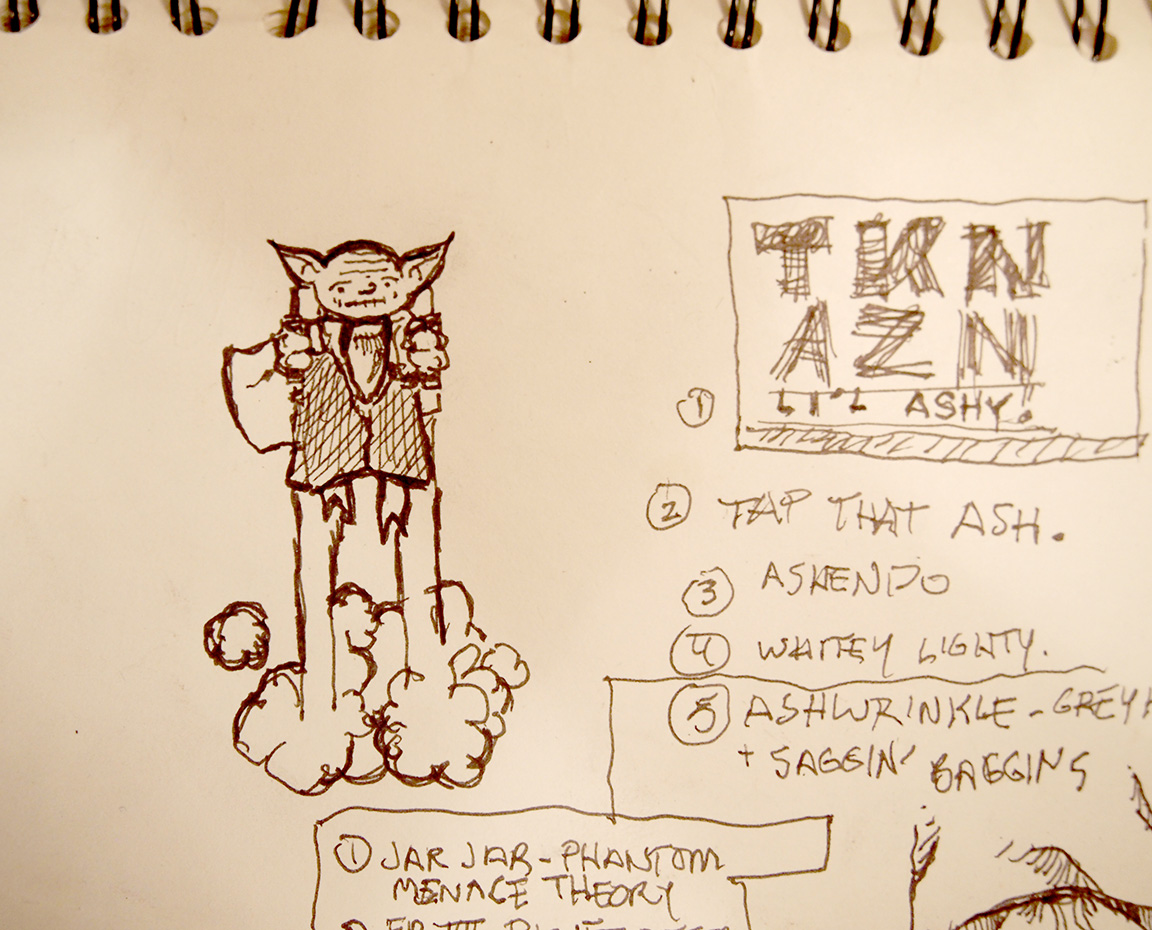 TKN
AZN
LI'L ASHY.
1
2 TAP THAT ASH.
3 ASHENDO
4 WHITEY LIGHTY.
5 ASHWRINKLE - GREY
+ SAGGIN' BAGGINS
1 JAR JAR - PHANTOM
MENACE THEORY